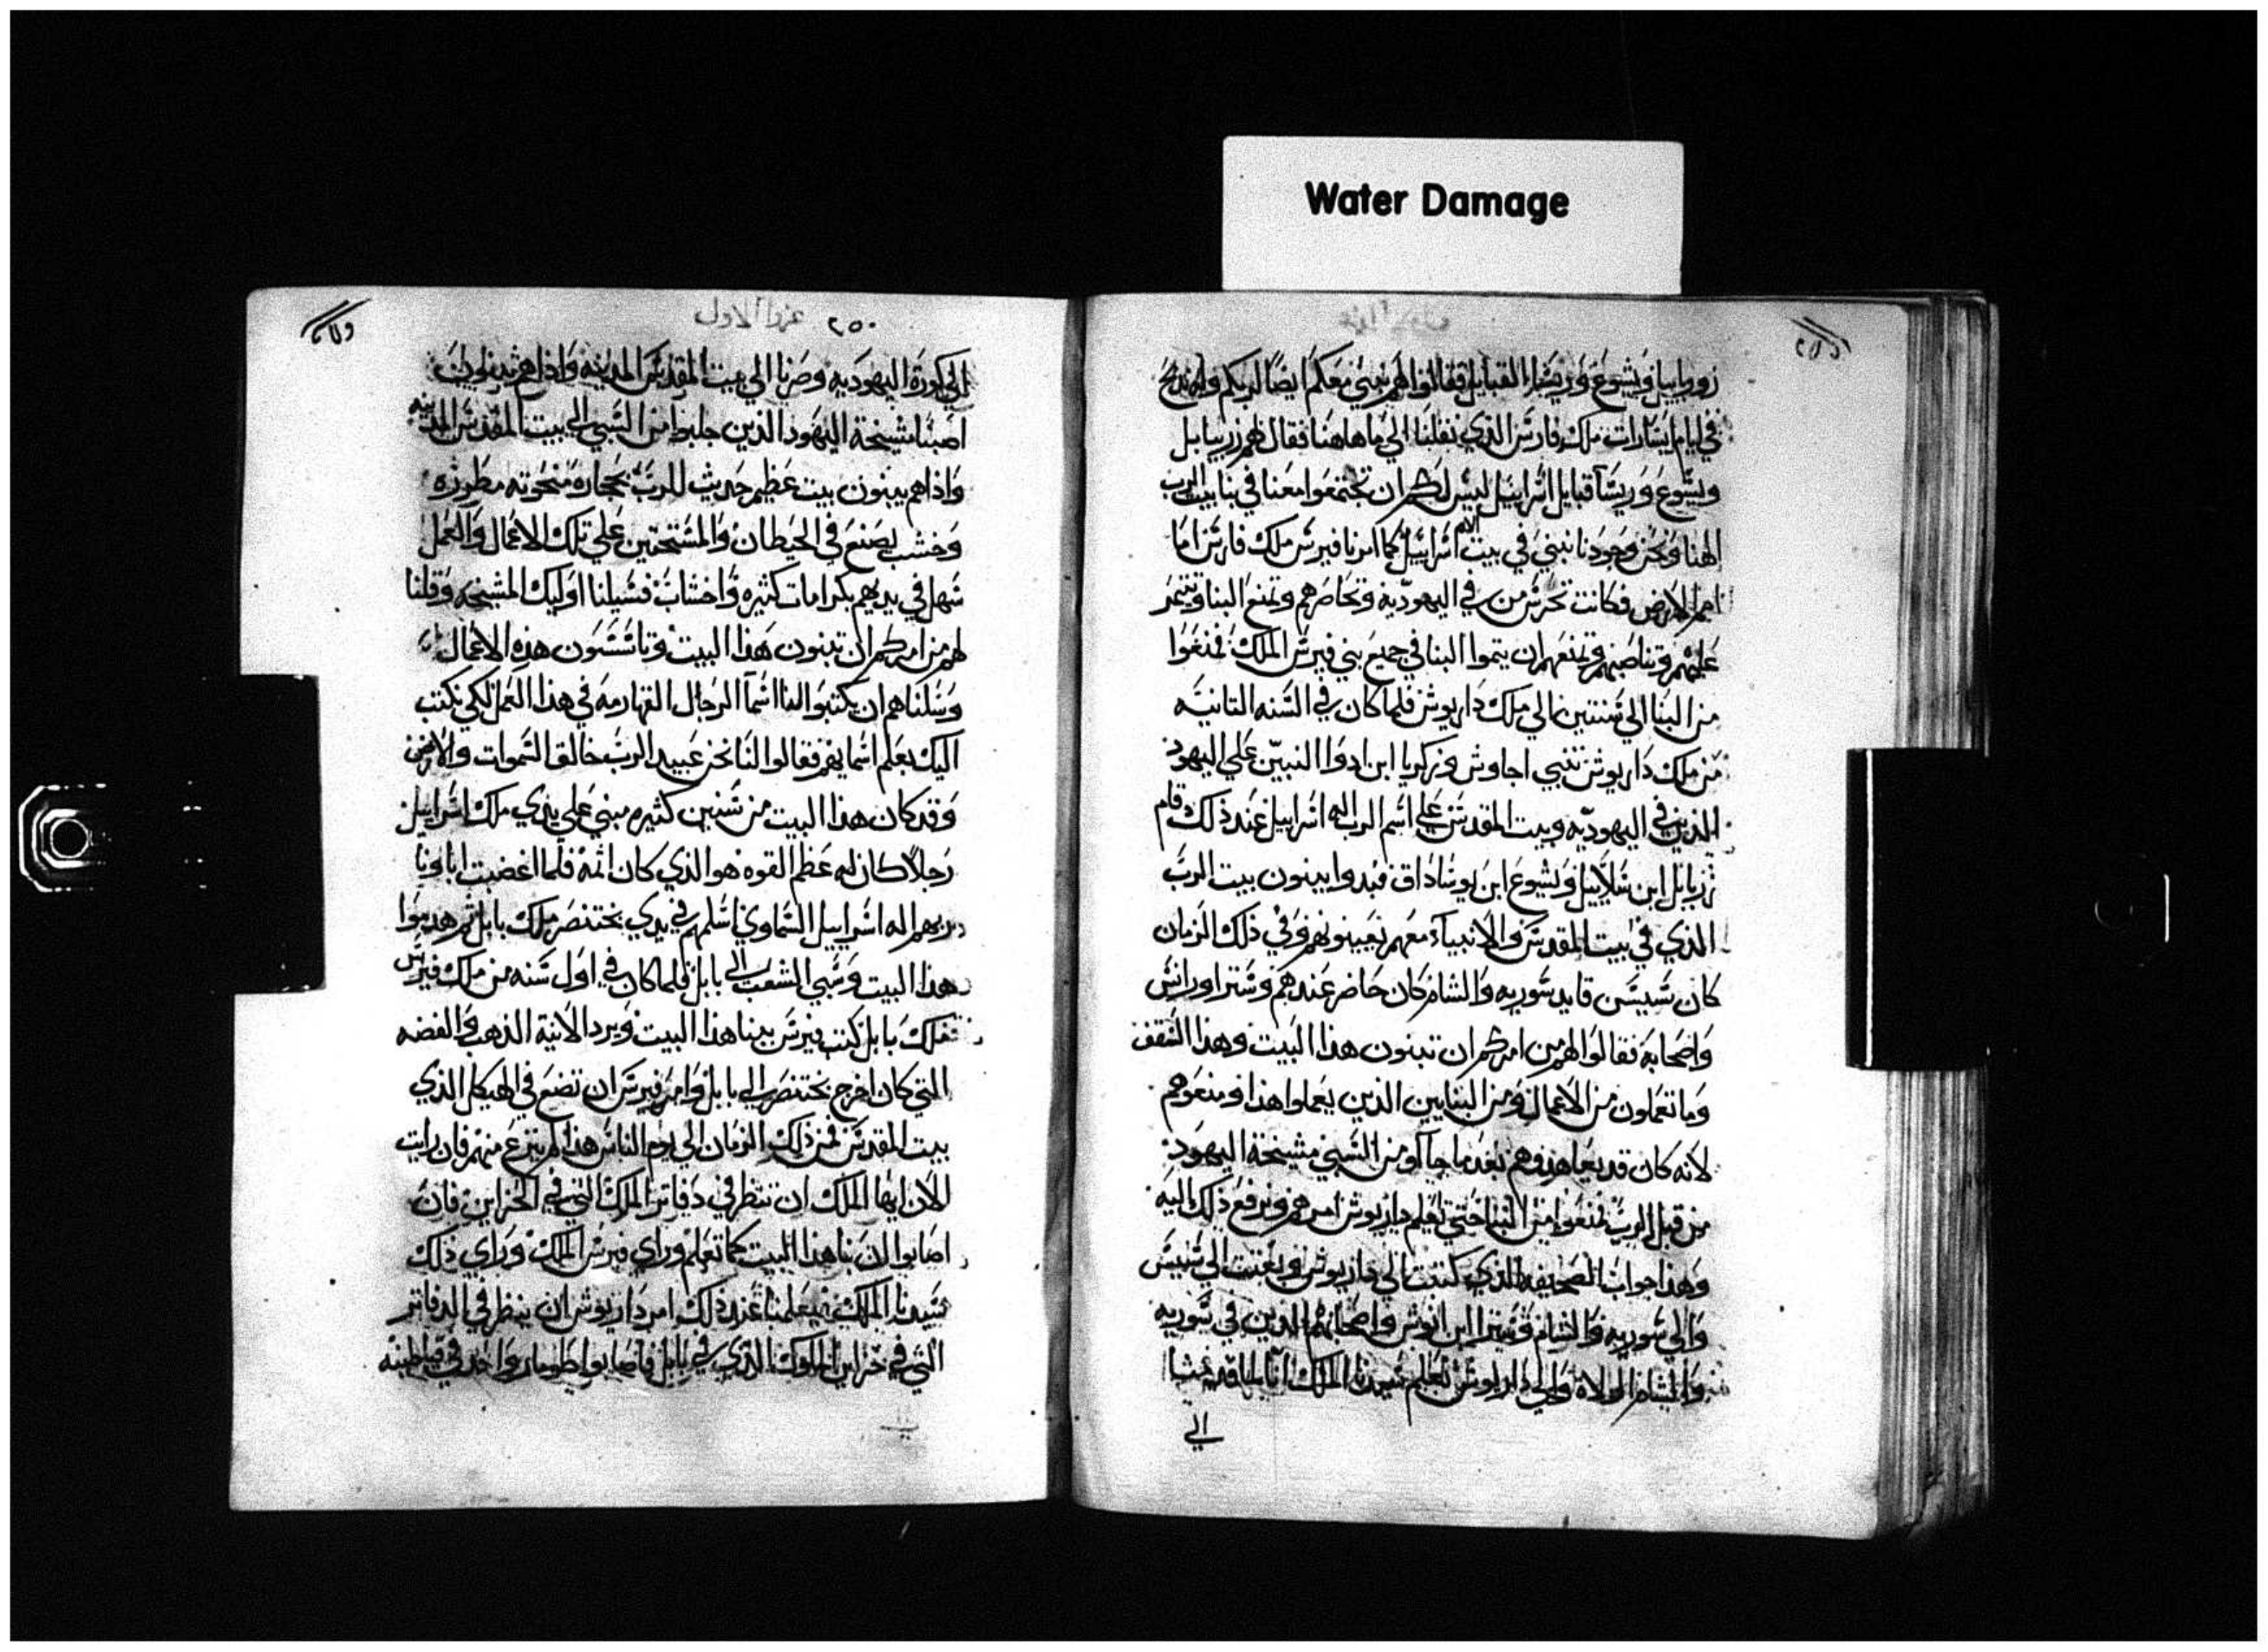 Water Damage
زوربابيل ويشوع وريشا القبايل فقالوا لهم نبني معكم ايضا لربكم وله نذبح
في ايام ايسارات ملك فارس الذي نقلنا الي ماهاهنا فقال لهم زربيابل
ويشوع وريسا قبايل اسراييل ليس لكم ان تجتمعوا معنا في بنا بيت الرب
الهنا ونحن وحودنا نبني في بيت اله اسراييل كما امرنا فيرس ملك فارس اما
امم الارض فكانت تحرس من في اليهوديه وتحاصرهم وتمنع البنا
عليهم وتناصبهم وتمنعهم ان يتموا البنا في جميع بني فيرس الملك فمنعوا
من البنا الي سنتين الي ملك داريوش فلما كان في السنه التانيه
من ملك داريوش تنبي اجاوش وزكريا ابن ادوا النبيين علي اليهود
الذين في اليهوديه وبيت المقدس علي اسم الرب اله اسراييل عند ذلك قام
زربابل ابن شلاييل ويشوع ابن يوشاداق فبدوا يبنون بيت الرب
الذي في بيت المقدس والانبياء معهم تعينونهم وفي ذلك الزمان
كان شيشس قايد سوريه والشام كان حاضر عندهم وشترا ورانش
واصحابه فقالوا لهم من امركم ان تبنون هذا البيت وهذا السقف
وما تعملون من الاعمال ومن البنايين الذين يعملوا هذا ومنعوهم
لانه كان قد يعاهدوهم بعد ما جآو من السبي مشيخة اليهود
من قبل الرب فمنعوا من البنا حتي تعلم داريوش امرهم ونرفع ذلك اليه
وهذا جواب الصحيفه الذي كتبت الي داريوش وبعتت الي شيشس
والي سوريه والشام وشترا ابن انوش واصحابهم الذين في سوريه
والشام الولاة والي داريوش تعلم سيدنا الملك اننا لما قد مشينا
الي
٢٥٠ عزرا الاول
الي كورة اليهوديه وصرنا الي بيت المقدس المدينه واذا هم
اصبنا مشيخة اليهود الذين جلبوا من السبي الي بيت المقدس المدينه
واذا هم يبنون بيت عظيم حديث للرب بحجاره منحوته مطرزه
وخشب يصنع في الحيطان والمستحتين علي تلك الاعمال والعمل
سهل في يديهم بكرامات كثيره واخشاب فسيلنا اوليك المشيخه وقلنا
لهم من امركم ان تبنون هذا البيت وتاسسون هذه الاعمال
وسلناهم ان يكتبوا لنا اسما الرجال القهارمه في هذا العمل لكي نكتب
اليك بعلم اسمايهم فقالوا لنا نحن عبيد الرب خالق السموات والارض
وقد كان هذا البيت من سنين كثيره مبني علي يدي ملك اسراييل
رجلا كان له عظم القوه هو الذي كان اتمه فلما اغضبت اباونا
بربهم اله اسراييل السماوي اسلمهم في يدي بختنصر ملك بابل ثم هدموا
هذا البيت وسبي الشعب الي بابل فلما كان في اول سنه من ملك فيرس
ملك بابل كتب فيرس ببنا هذا البيت ويرد الانية الذهب والفضه
التي كان اخرج بختنصر الي بابل وامر فيرس ان تضع في الهيكل الذي
بيت المقدس فمن ذلك الزمان الي يوم الناس هذا لم يتزع منهم فان رايت
الان ايها الملك ان تنظر في دفاتر الملك التي في الخزاين فان
اصابوا ان بنا هذا البيت كما تعلم وراي فيرس الملك وراي ذلك
سيدنا الملك فيعلمنا عند ذلك امر داريوش ان ينظر في الدفاتر
التي في خزاين الملوك الذي في بابل فاصابوا طومار واحد في